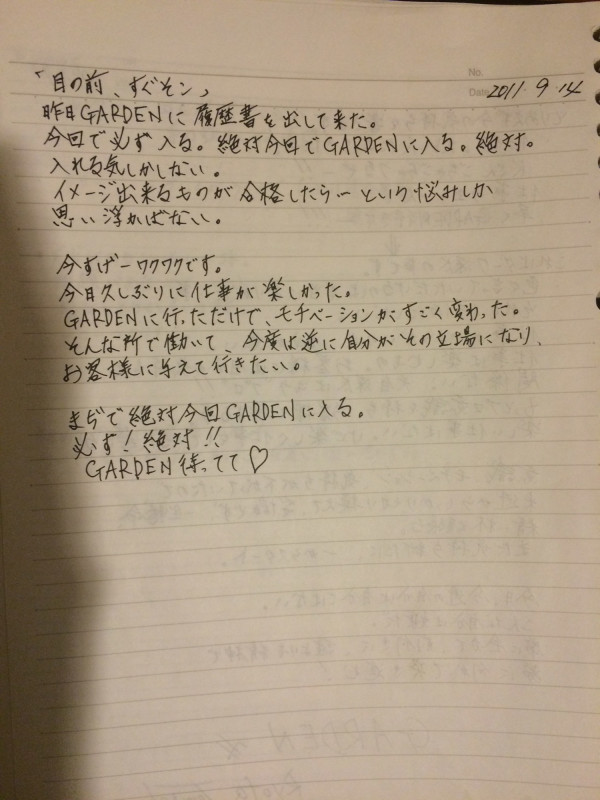 No.
Date 2011. 9. 14
「目の前、すぐそこ」
昨日GARDENに履歴書を出して来た。
今回で必ず入る。絶対今回でGARDENに入る。絶対。
入れる気しかしない。
イメージ出来るものが合格したらーという悩みしか
思い浮かばない。
今すげーワクワクです。
今日久しぶりに仕事が楽しかった。
GARDENに行っただけで、モチベーションがすごく変わった。
そんな所で働いて、今度は逆に自分がその立場になり、
お客様に与えて行きたい。
まぢで絶対今回GARDENに入る。
必ず！絶対！！
GARDEN待ってて♡